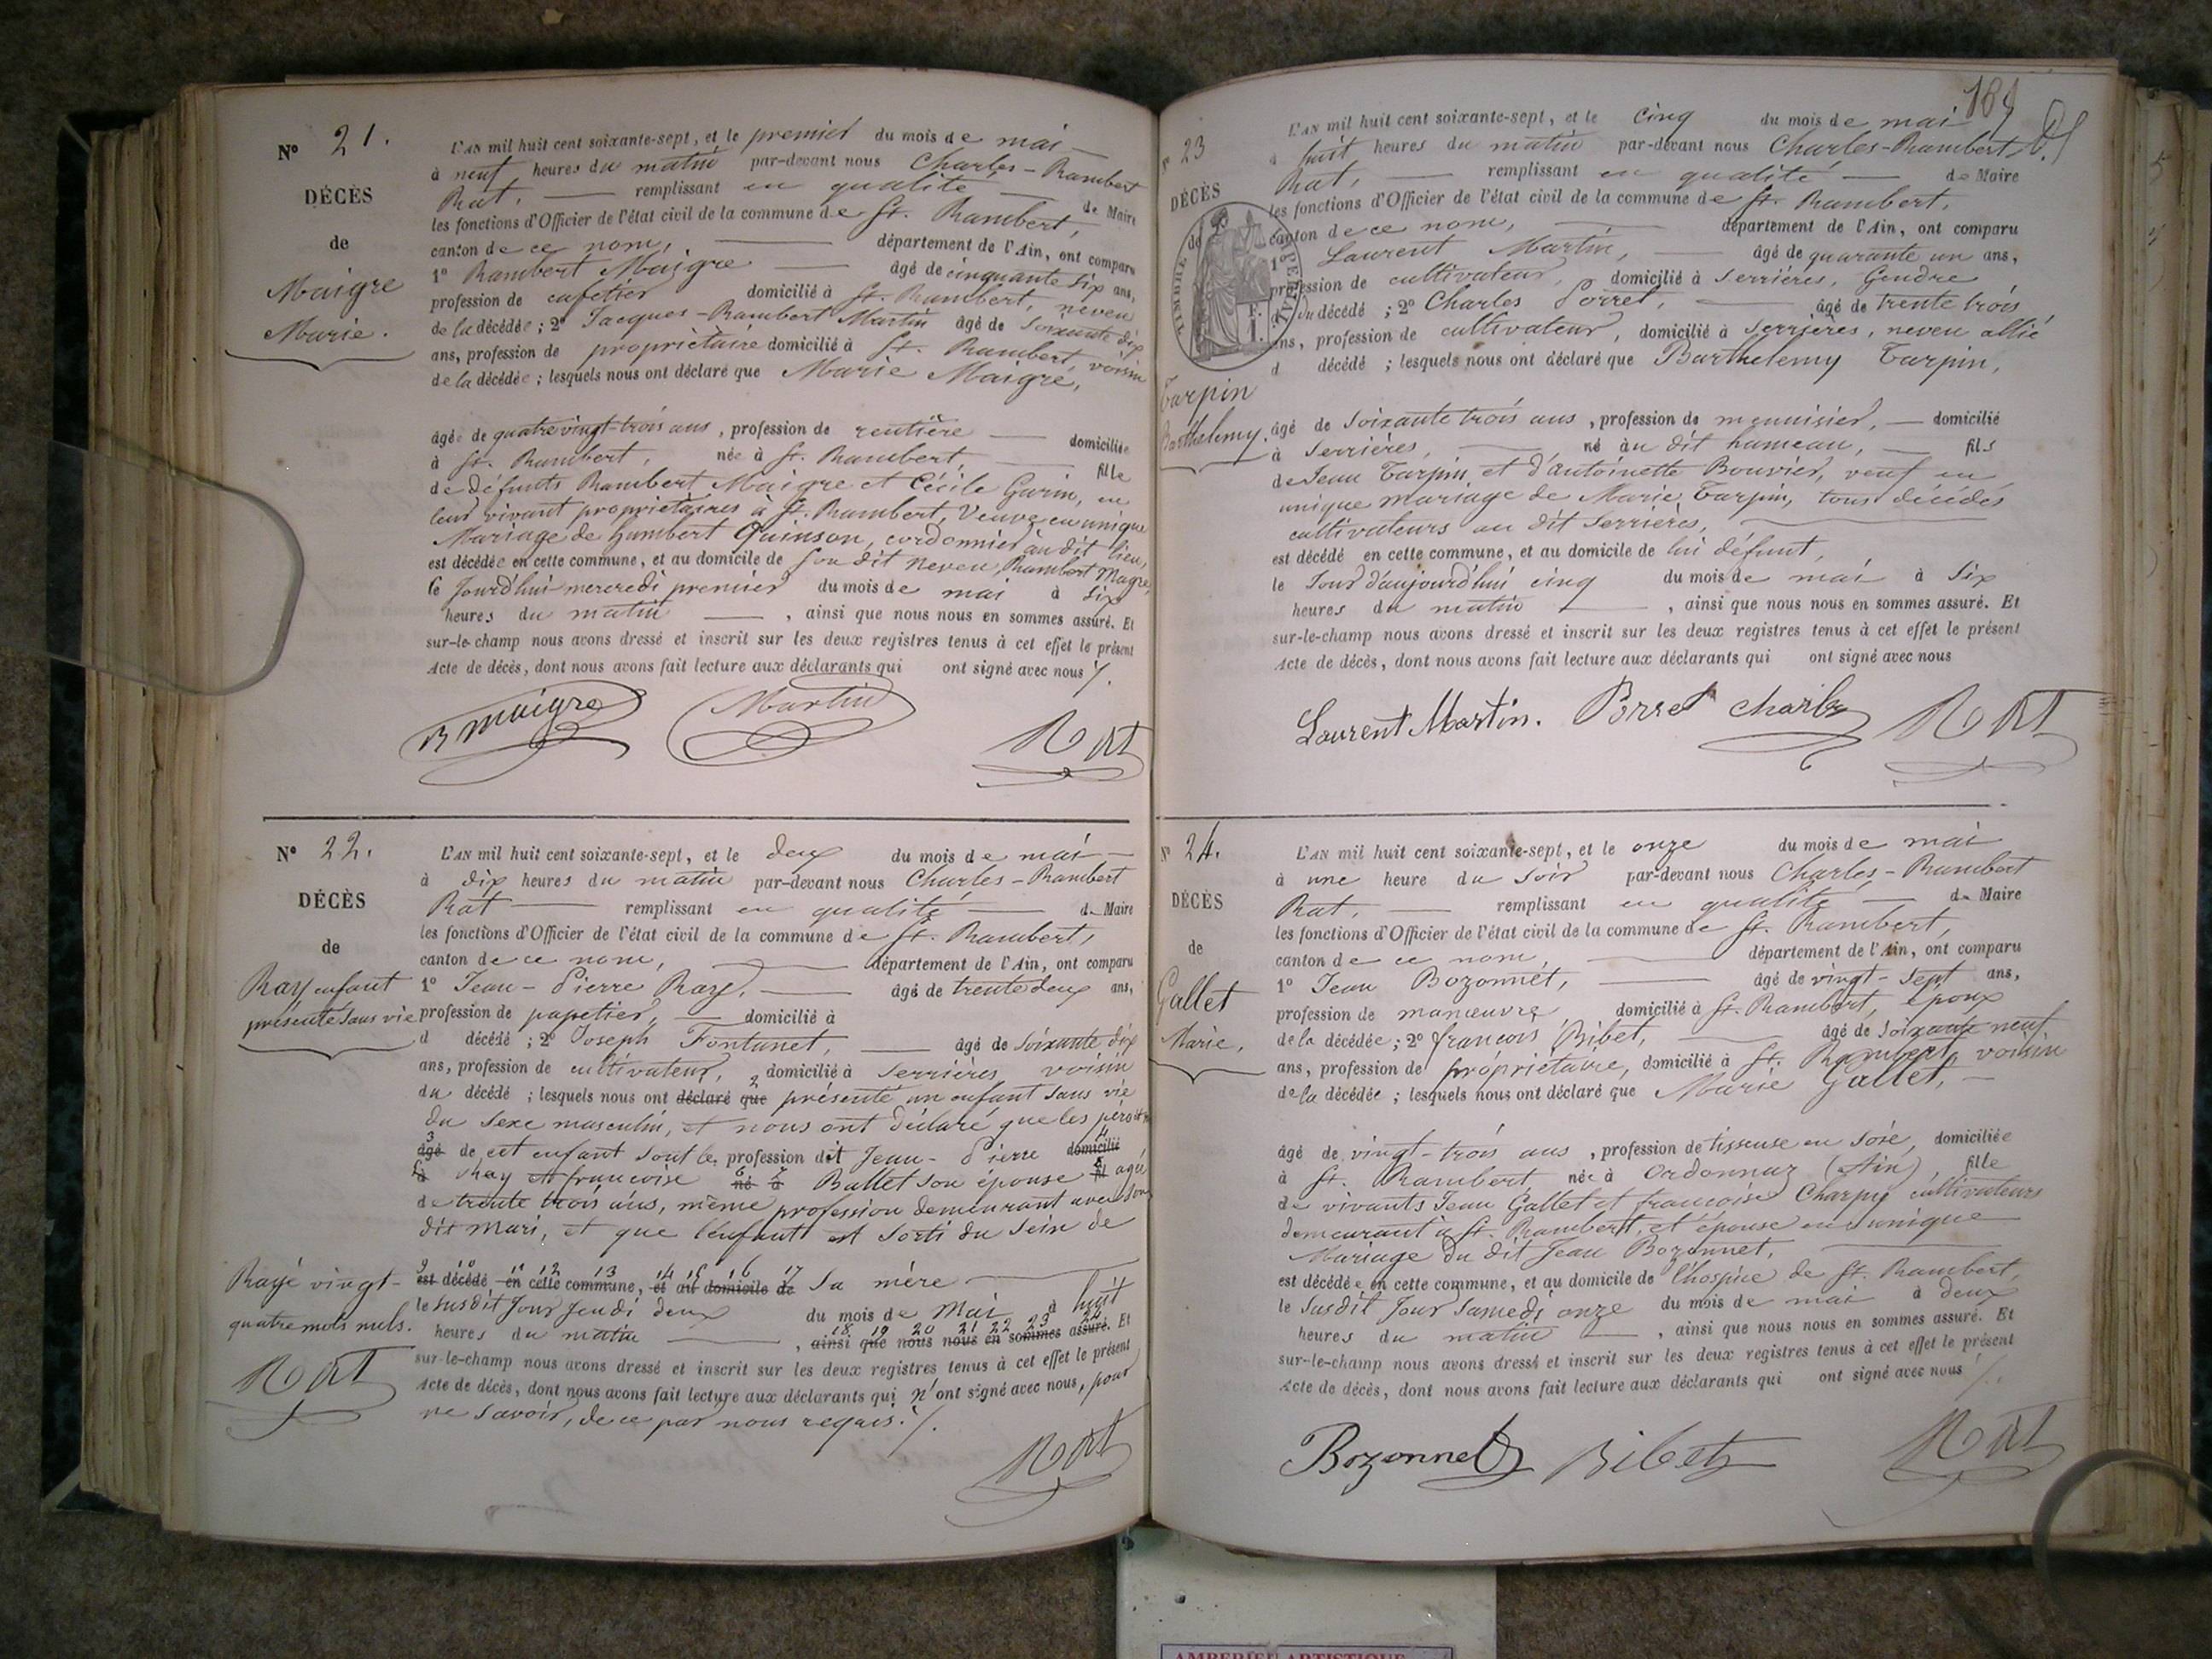 N° 21.
DÉCÈS
de
Maigre
Marie.
L'AN mil huit cent soixante-sept, et le premier du mois de mai
à neuf heures du matin par-devant nous Charles-Rambert
Rat, remplissant en qualité de Maire
les fonctions d'Officier de l'état civil de la commune de St. Rambert,
canton de ce nom, département de l'Ain, ont comparu
1° Rambert Maigre âgé de cinquante six ans,
profession de cafetier domicilié à St. Rambert, neveu
de la décédée ; 2° Jacques-Rambert Martin âgé de soixante dix
ans, profession de propriètaire domicilié à St. Rambert, voisin
de la décédée ; lesquels nous ont déclaré que Marie Maigre,
âgée de quatre vingt-trois ans, profession de rentière domiciliée
à St. Rambert, née à St. Rambert, fille
de défunts Rambert Maigre et Cécile Garin, en
leur vivant propriètaires à St. Rambert, Veuve en unique
Mariage de humbert Quinson, cordonnier au dit lieu,
est décédée en cette commune, et au domicile de son dit neveu, Rambert Magre,
le Jourd'hui mercredi premier du mois de mai à six
heures du matin, ainsi que nous nous en sommes assuré. Et
sur-le-champ nous avons dressé et inscrit sur les deux registres tenus à cet effet le présent
Acte de décès, dont nous avons fait lecture aux déclarants qui ont signé avec nous /.
R maigre Martin Rat
N° 22.
DÉCÈS
de
Ray enfant
présenté sans vie
L'AN mil huit cent soixante-sept, et le deux du mois de mai
à dix heures du matin par-devant nous Charles-Rambert
Rat remplissant en qualité de Maire
les fonctions d'Officier de l'état civil de la commune de St. Rambert,
canton de ce nom, département de l'Ain, ont comparu
1° Jean-Pierre Ray, âgé de trente deux ans,
profession de papetier, domicilié à
d décédé ; 2° Joseph Fontanet, âgé de soixante dix
ans, profession de cultivateur, domicilié à Serrières voisin
du décédé ; lesquels nous ont déclaré que présenté un enfant sans vie
du sexe masculin, et nous ont déclaré que les père et
3 âgé de cet enfant sont le profession dit Jean-Pierre 4 domicilié
5 à Ray et françoise 6 né 7 à Ballet son épouse 8 fil agée
de trente trois ans, même profession demeurant avec son
dit Mari, et que l'enfant est sorti du sein de
9 10 11 12 13 14 15 16 17
est décédé en cette commune, et au domicile de sa mère
le susdit Jour Jeudi deux du mois de Mai à huit
18 19 20 21 22 23 24
heures du matin, ainsi que nous nous en sommes assuré. Et
sur-le-champ nous avons dressé et inscrit sur les deux registres tenus à cet effet le présent
Acte de décès, dont nous avons fait lecture aux déclarants qui n'ont signé avec nous, pour
ne savoir, de ce par nous requis. /.
Rat
Rayé vingt-
quatre mots nuls.
Rat
184
N° 23
DÉCÈS
de
TIMBRE IMPERIAL
1 F.
Tarpin
Barthelemy.
L'AN mil huit cent soixante-sept, et le cinq du mois de mai
à huit heures du matin par-devant nous Charles-Rambert
Rat, remplissant en qualité de Maire
les fonctions d'Officier de l'état civil de la commune de St. Rambert,
canton de ce nom, département de l'Ain, ont comparu
1° Laurent Martin, âgé de quarante un ans,
profession de cultivateur, domicilié à Serrières, Gendre
du décédé ; 2° Charles Porret, âgé de trente trois
ans, profession de cultivateur, domicilié à Serrières, neveu allié
d décédé ; lesquels nous ont déclaré que Barthelemy Tarpin,
âgé de soixante trois ans, profession de menuisier, domicilié
à Serrières, né au dit hameau, fils
de Jean Tarpin et d'antoinette Bouvier, veuf en
unique mariage de Marie Tarpin, tous décédés
cultivateurs au dit Serrières,
est décédé en cette commune, et au domicile de lui défunt,
le Jour d'aujourd'hui cinq du mois de mai à six
heures du matin, ainsi que nous nous en sommes assuré. Et
sur-le-champ nous avons dressé et inscrit sur les deux registres tenus à cet effet le présent
Acte de décès, dont nous avons fait lecture aux déclarants qui ont signé avec nous
Laurent Martin. Porret charles Rat
N° 24.
DÉCÈS
de
Gallet
Marie.
L'AN mil huit cent soixante-sept, et le onze du mois de mai
à une heure du soir par-devant nous Charles-Rambert
Rat, remplissant en qualité de Maire
les fonctions d'Officier de l'état civil de la commune de St. Rambert,
canton de ce nom, département de l'Ain, ont comparu
1° Jean Bozonnet, âgé de vingt-sept ans,
profession de manœuvre domicilié à St. Rambert, époux
de la décédée ; 2° françois Bibet, âgé de soixante neuf
ans, profession de propriétaire, domicilié à St. Rambert, voisin
de la décédée ; lesquels nous ont déclaré que Marie Gallet,
âgé de vingt-trois ans, profession de tisseuse en soie, domiciliée
à St. Rambert née à Ordonnaz (Ain), fille
de vivants Jean Gallet et françoise Charpy cultivateurs
demeurant à St. Rambert, et épouse en unique
Mariage du dit Jean Bozonnet,
est décédée en cette commune, et au domicile de l'hospice de St. Rambert,
le susdit Jour Samedi onze du mois de mai à deux
heures du matin, ainsi que nous nous en sommes assuré. Et
sur-le-champ nous avons dressé et inscrit sur les deux registres tenus à cet effet le présent
Acte de décès, dont nous avons fait lecture aux déclarants qui ont signé avec nous /.
Bozonnet Bibet Rat
AMBERIEU ARTISTIQUE